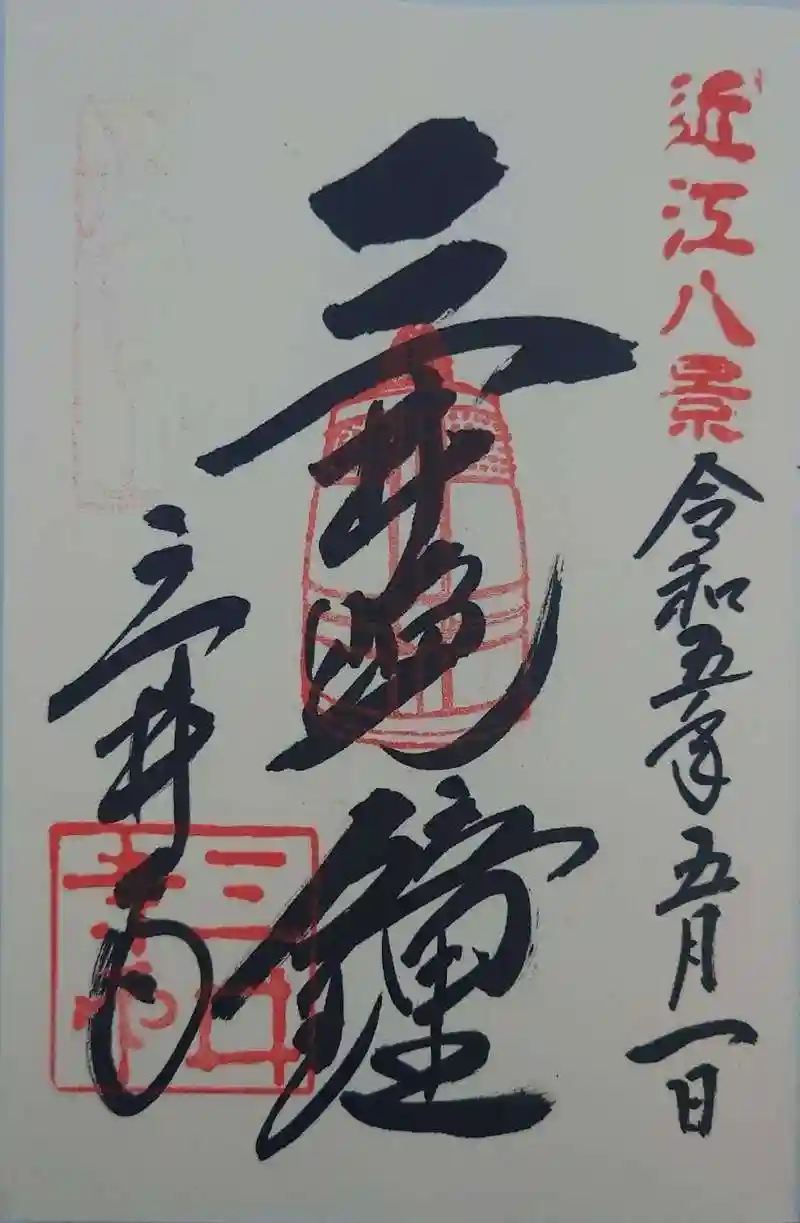 近江八景
令和五年五月一日
三井晩鐘
三井寺
三井寺印